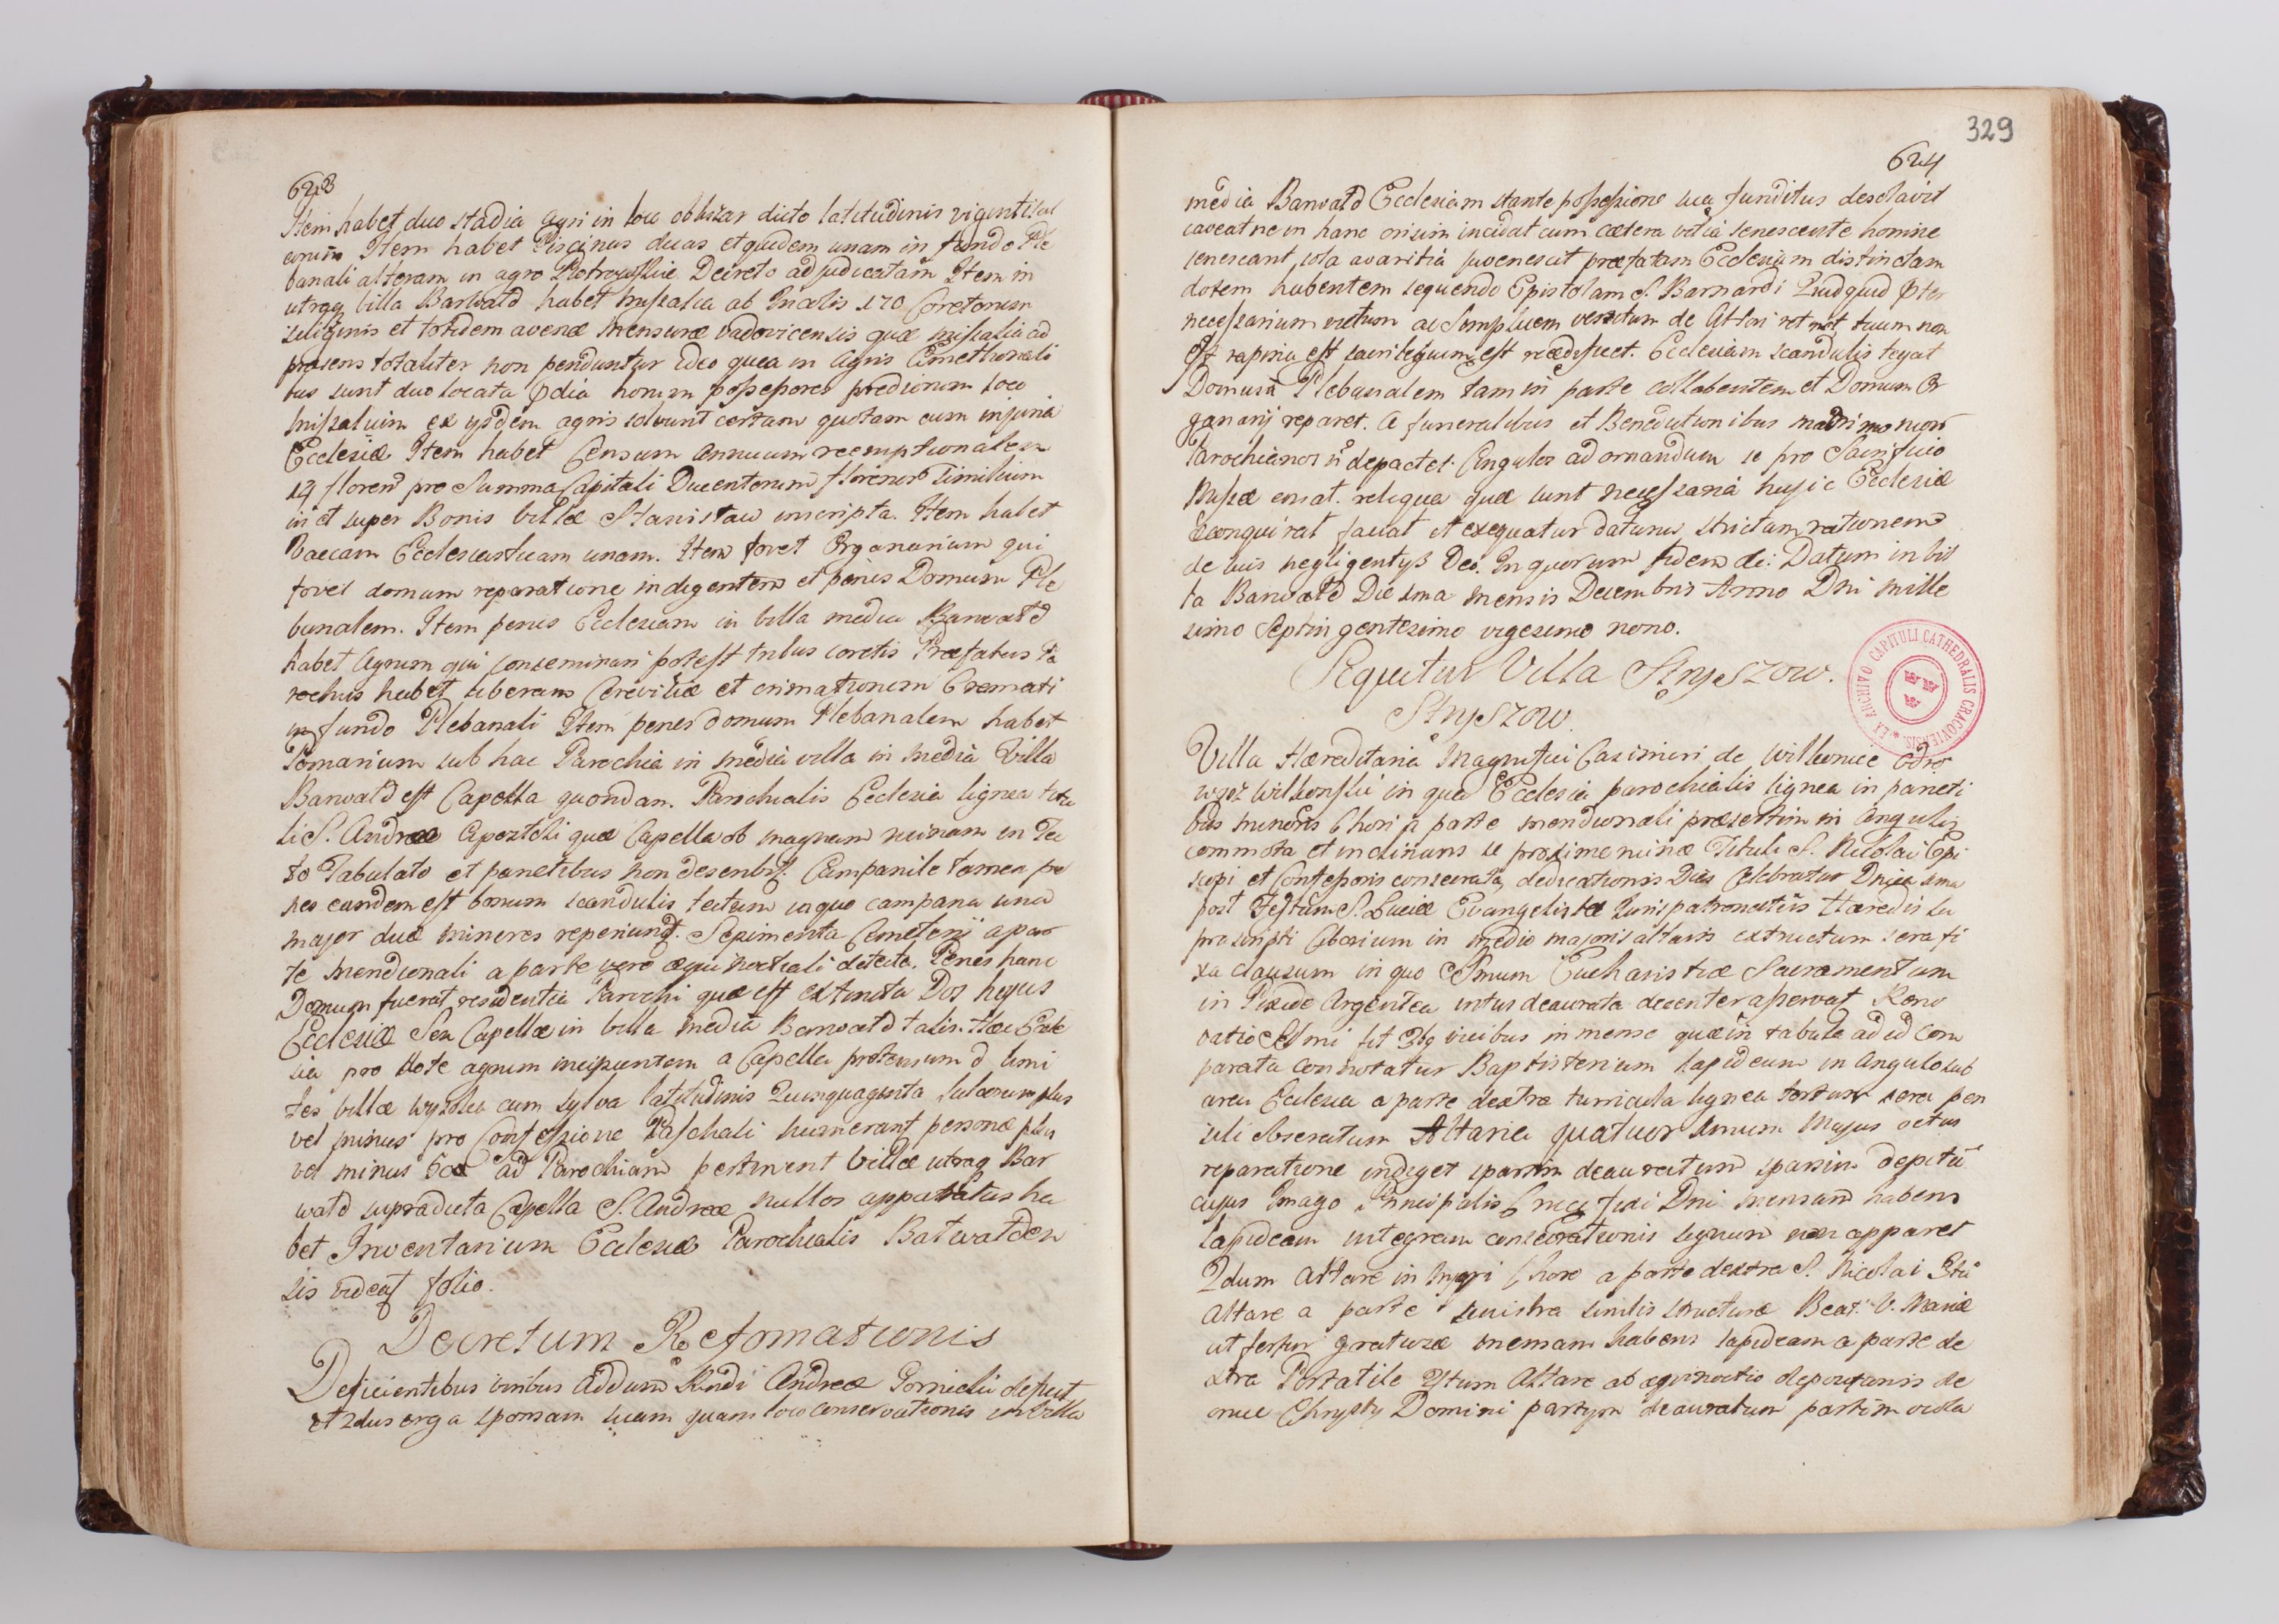 623
Item habet duo stadia Agri in loco obliszar dicto latitudinis viginti sul
corum Item habet Piscinas duas et quidem unam in fundo Ple
banali alteram in agro Piotrowskie Decreto adjudicatam Item in
utraq villa Barwald habet missalia ab Incolis 170 Coretorum
siliginis et totidem avenæ mensuræ vadovicensis quæ missalia ad
præsens totaliter non penduntur ideo quia in Agris Cmethonali
bus sunt duo locata prædia horum possessores prediorum loco
missalium ex ijsdem agris solvunt certam quotam cum injuria
Ecclesiæ Item habet Censum Annuum reemptionalem
14 floren pro Summa Capitali Ducentorum florenor Similium
in et super Bonis Villæ Stanislaw inscripta. Item habet
Vaccam Ecclesiasticam unam. Item fovet Organarium qui
fovet domum reparatione indigentem et penes Domum Ple
banalem. Item penes Ecclesiam in Villa media Barwald
habet Agrum qui conseminari potest tribus coretis Præfatus Pa
rochus habet liberam Cerevisiæ et cremationem Cremati
in fundo Plebanali Item penes domum Plebanalem habet
Pomarium sub hac Parochia in media villa in media Villa
Barwald est Capella quondam. Parochialis Ecclesia lignea titu
li S. Andreæ Apostoli quæ Capella ob magnam ruinam in Tec
to Tabulato et parietibus non describit. Campanile tamen pe
nes eandem est bonum scandulis tectum in quo campana una
major duæ minores reperiunt. Sepimenta Cemeterii a par
te meridionali a parte vero æquinoctiali detecta. Penes hanc
Domum fuerat residentia Parochi quæ est extincta Dos hujus
Ecclesiæ Seu Capellæ in Villa media Barwald talis. Hæc Eccle
sia pro dote agrum incipientem a Capella protensum ad limi
tes Villæ Wysoka cum sylva latitudinis Quinquaginta Sulcorum plus
vel minus pro Confessione Paschali numerant personæ plus
vel minus 600 ad Parochiam pertinent Villæ utraq Bar
wald supradicta Capella S. Andreæ nullos apparatus ha
bet Inventarium Ecclesiæ Parochialis Batwalden
sis videat folio.
Decretum Refomationis
Deficientibus viribus Addum Rndi Andreæ Gornicki
et zelus erga sponsam suam quam loco conservationis in Villa
329
624
media Barwald Ecclesiam stante possessione sua funditus desolavit
caveat ne in hanc crisim incidat cum cætera vitia senescente homine
senescant, sola avaritia juvenescit præfatam Ecclesiam distinctam
dotem habentem sequendo Epistolam S. Barnardi Quidquid pter
necessarium victum ac Simplicem vestitum de Altari retinet tuum non
est rapina est sacrilegium est reædificet. Ecclesiam scandulis tegat
Domum Plebanalem tam in parte collabentem et Domum Or
ganarij reparet. A funeralibus et Benedictionibus matrimonior
Parochianos n depactet. Cingulos ad ornandum se pro Sacrificio
Missæ emat. reliqua quæ sunt necessaria hujic Ecclesiæ
conquirat faciat et exequatur daturus strictam rationem
de suis negligentijs Deo. In quorum fidem &c: Datum in Vil
la Barwald Die 1ma Mensis Decembris Anno Dni Mille
simo Septingentesimo vigesimo nono.
Sequitur Villa Stryszow.
Stryszow.
Villa Hæreditaria Magnifici Casimiri de Wilkonice Odro
wąsz Wilkonski in qua Ecclesia parochialis lignea in parieti
bus minoris Chori a parte meridionali præsertim in Angulis
commota et inclinans se proxime ruinæ Tituli S. Nicolai Epi
scopi et Confessoris consecrata, dedicationis Dies Celebratur Dnica 1ma
post Festum S. Luciæ Evangelistæ Jurispatronatus Hæredis su
prascripti Ciborium in medio majoris altaris extructum sera fi
xa clausum in quo SSmum Eucharistiæ Sacramentum
in Pixide Argentea intus deaurata decenter asservat Reno
vatio SSmi fit 3bg vicibus in mense quæ in tabula ad id com
parata connotatur Baptisterium lapideum in Angulo sub
area Ecclesia a parte dextra turricula lignea tectum sera pen
sili obseratum Altaria quatuor 1mum Majus vetus
reparatione indiget sparsim deauratum sparsim depictu
cujus Imago Principalis Crucifixi Dni mensam habens
lapideam integram consecrationis signum non apparet
2dum Altare in Majori Choro a parte dextra S. Nicolai 3tiu
Altare a parte sinistra similis structuræ Beat: V. Mariæ
ut fertur gratiosæ mensam habens lapideam a parte de
xtra Portatile 4tum Altare ab æquinoctio deportationis de
cruce Chrysty Domini partym deauratum partim viola